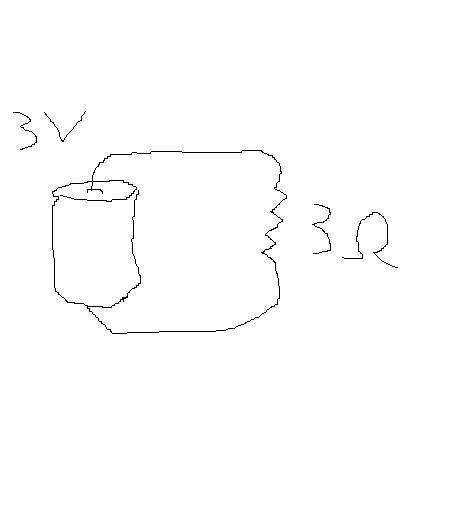 3V
3Ω